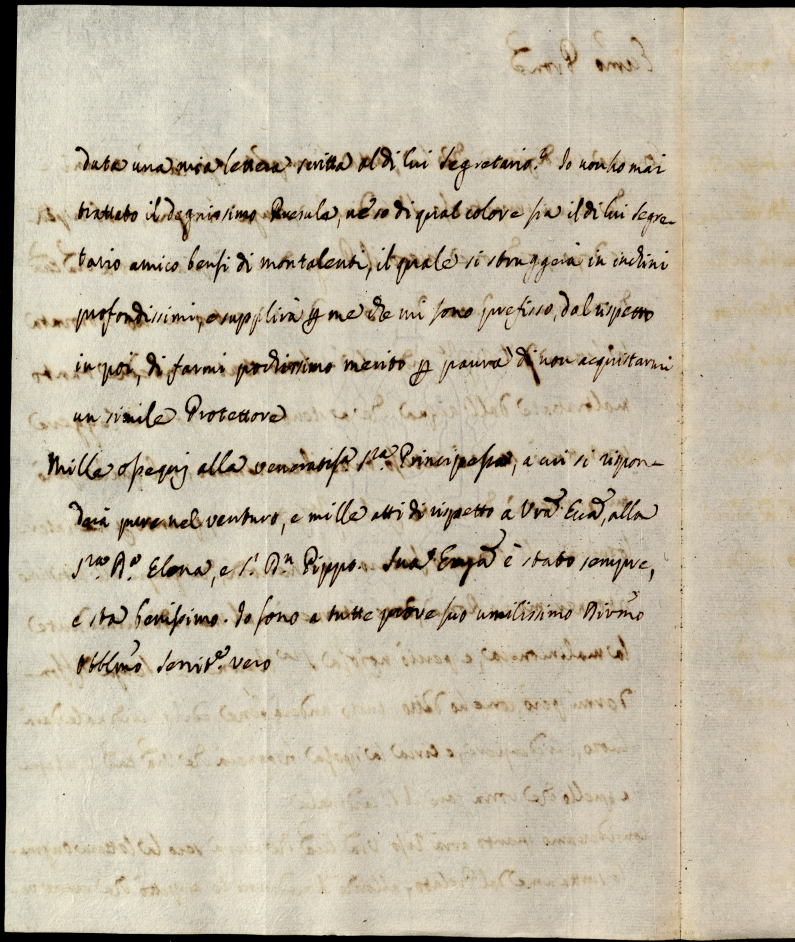 data una mia lettera scritta al di lui Segretario. Io non ho mai
trattato il degnissimo Presule, ne so di qual colore sia il di lui Segre-
tario amico bensi di Montalenti, il quale si struggerà in inchini
profondissimi, e supplirà p me che mi sono prefisso, dal rispetto
in poi, di farmi pochissimo merito p paura di non acquistarmi
un simile Protettore
Mille ossequj alla veneratisſ.ª S.ra Principessa, a cui si rispon-
derà pure nel venturo, e mille atti di rispetto à Vrã Eccã, alla
S.ra D.a Elena, e S.r D.n Pippo. Sua Emzã è stato sempre,
e sta benissimo. Io sono a tutte prove suo umilissimo Divmo
Obblmo Servit.e vero